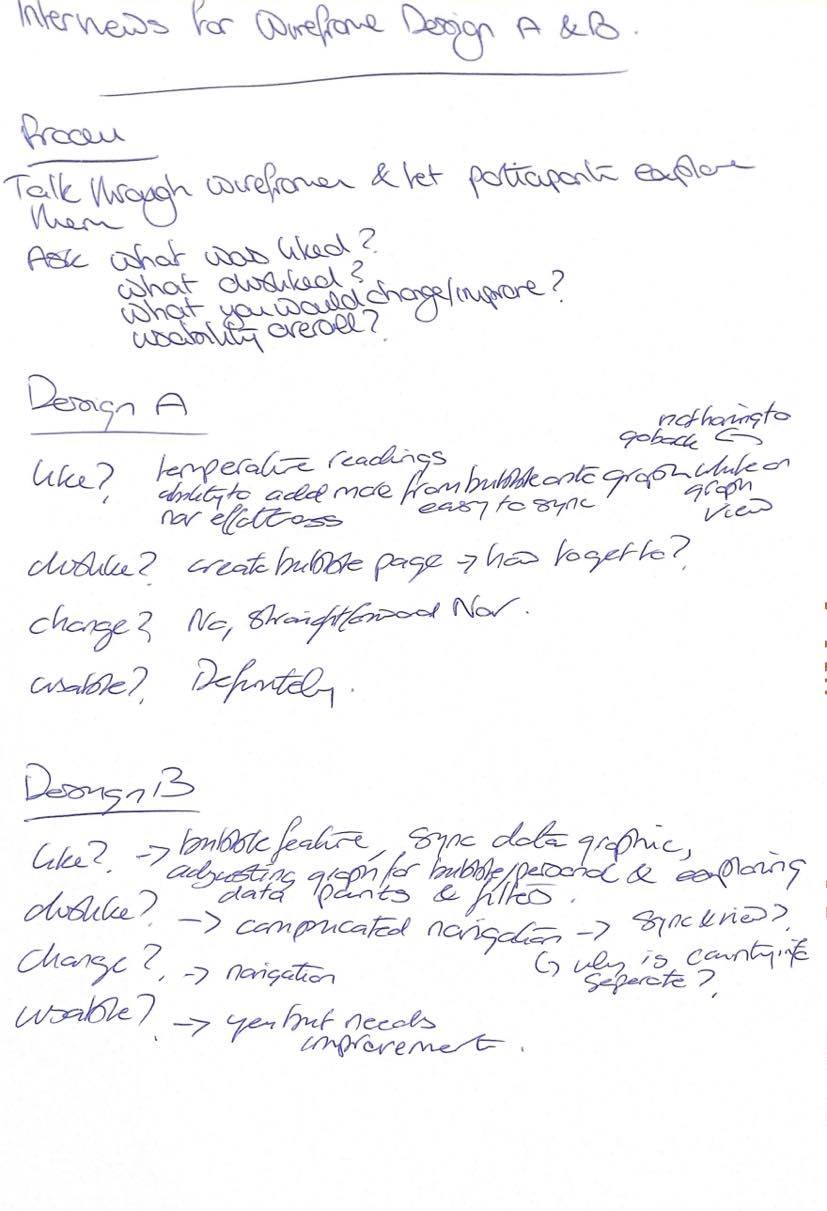 Interviews for Wireframe Design A & B.
Process
Talk through wireframes & let participants explore
them
Ask what was liked?
what disliked?
what you would change/improve?
usability overall?
Design A
like? temperature readings
ability to add more from bubble onto graph while on graph view
not having to go back
nav effortless easy to sync
dislike? create bubble page → how to get to?
change? No, straightforward Nav.
usable? Definitely.
Design B
like? → bubble feature, sync data graphic,
adjusting graph for bubble/personal & exploring
data points & filters.
dislike? → complicated navigation → sync & view?
↳ why is country info seperate?
change? → navigation
usable? → yes but needs
improvement.